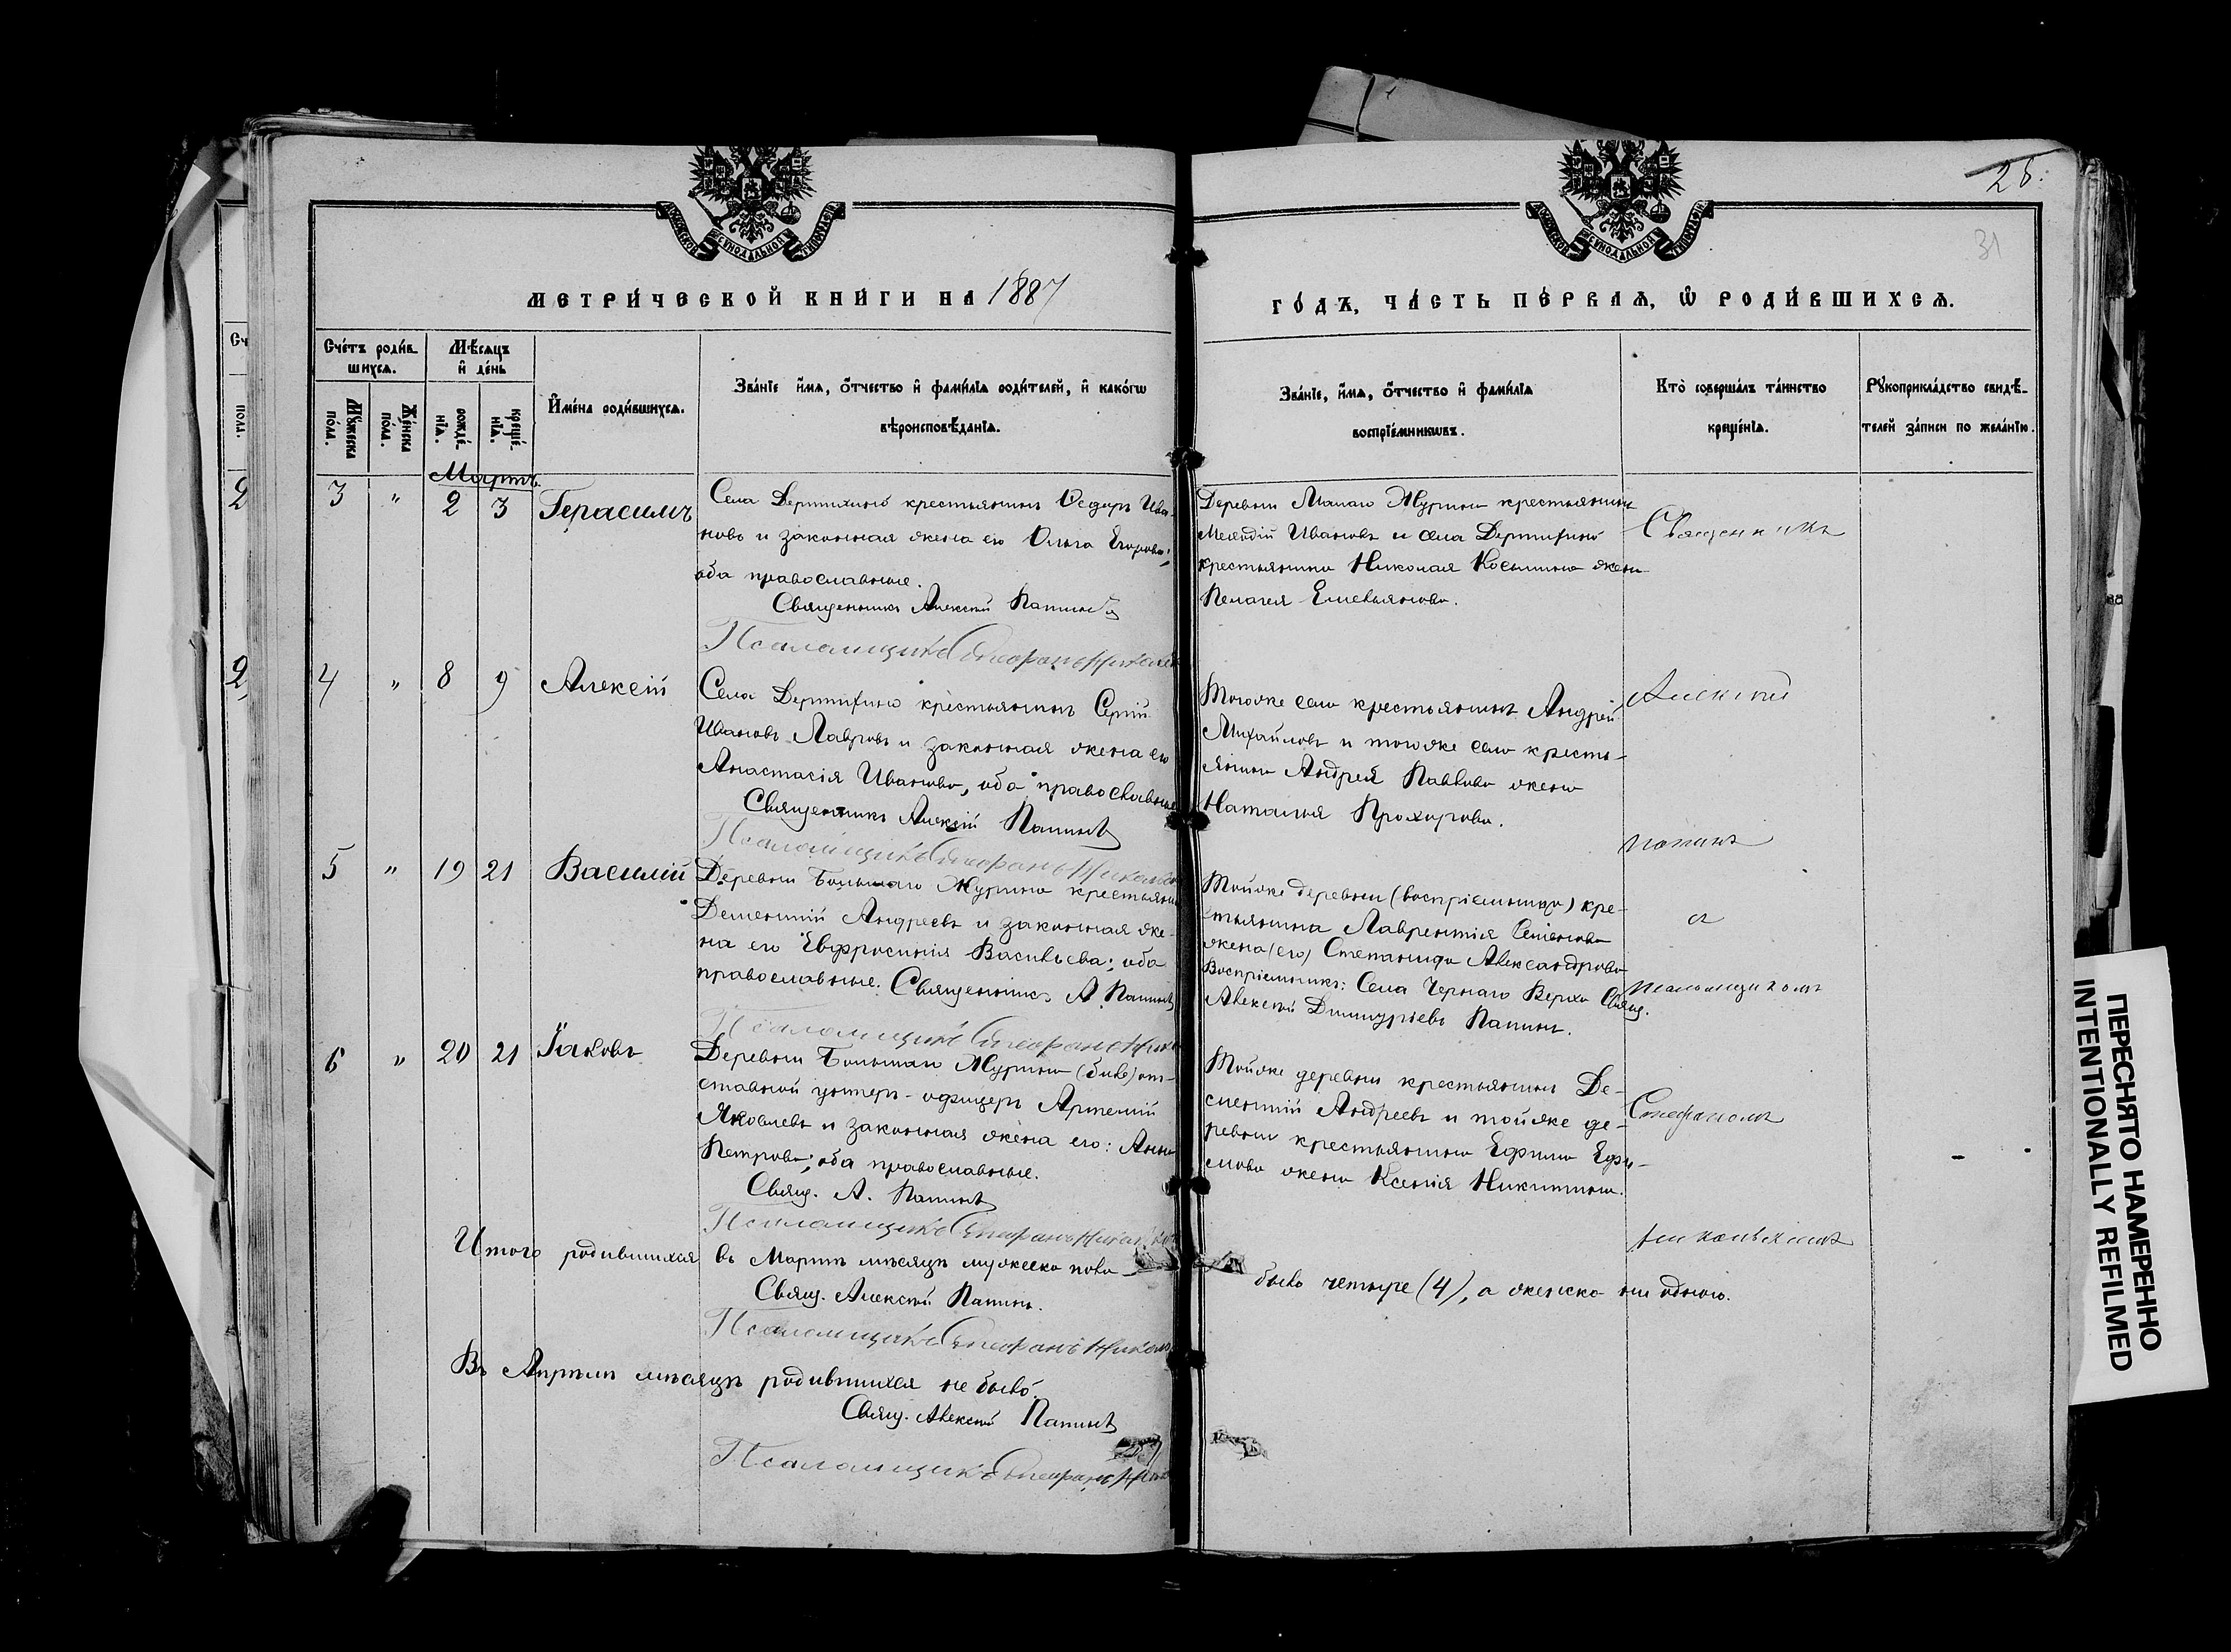 28.
31
МЕТРИЧЕСКОЙ КНИГИ НА 1887
ГОДЪ, ЧАСТЬ ПЕРВАЯ, Ѡ РОДИВШИХСЯ.
Счетъ родившихся.
Мужеска пола.
Женска пола.
Мѣсяцъ и день
рожденія.
крещенія.
Имена родившихся.
Званіе имя, отчество и фамилія родителей, и какогѡ
вѣроисповѣданія.
Званіе, имя, отчество и фамилія
воспріемникѡвъ.
Кто совершалъ таинство
крещенія.
Рукоприкладство свидѣ-
телей записи по желанію.
Мартъ.
3 " 2 3 Герасимъ
Села Дертихино крестьянинъ Ѳедоръ Ива-
новъ и законная жена его Ольга Егорова;
оба православные.
Священникъ Алексій Папинъ
Псаломщикъ Стефанъ
Деревни Малаго Журина крестьянинъ
Меѳодій Ивановъ и села Дертихино
крестьянина Николая Косьмина жена
Пелагея Емельянова.
Священникъ
4 " 8 9 Алексій
Села Дертихино крестьянинъ Сергій
Ивановъ Лавровъ и законная жена его
Анастасія Иванова, оба православные
Священникъ Алексій Папинъ
Псаломщикъ Стефанъ
Тогоже села крестьянинъ Андрей
Михайловъ и тогоже села кресть-
янина Андрея Павлова жена
Наталья Прохорова.
Алексій
Папинъ
5 " 19 21 Василій
Деревни Большаго Журина крестьянинъ
Дементій Андреевъ и законная же-
на его Евфросинія Васильева; оба
православные. Священникъ А Папинъ
Псаломщикъ Стефанъ
Тойже деревни (воспріемница) кре-
стьянина Лаврентія Семенова
жена (его) Степанида Александрова
Воспріемникъ: Села Чернаго Верха Свящ.
Алексій Димитріевъ Папинъ.
съ
псаломщикомъ
6 " 20 21 Іаковъ
Деревни Большаго Журина (билъ) от-
ставной унтеръ-офицеръ Артемій
Яковлевъ и законная жена его: Анна
Петрова; оба православные.
Свящ. А. Папинъ
Псаломщикъ Стефанъ
Тойже деревни крестьянинъ Де-
ментій Андреевъ и тойже де-
ревни крестьянина Ефима Ефи-
мова жена Ксенія Никитина.
Стефаномъ
Никольскимъ
Итого родившихся въ Мартѣ мѣсяцѣ мужеска пола
было четыре (4), а женска ни одного.
Свящ. Алексій Папинъ.
Псаломщикъ Стефанъ
Въ Апрѣлѣ мѣсяцѣ родившихся не было.
Свящ. Алексій Папинъ
Псаломщикъ Стефанъ
ПЕРЕСНЯТО НАМЕРЕННО
INTENTIONALLY REFILMED